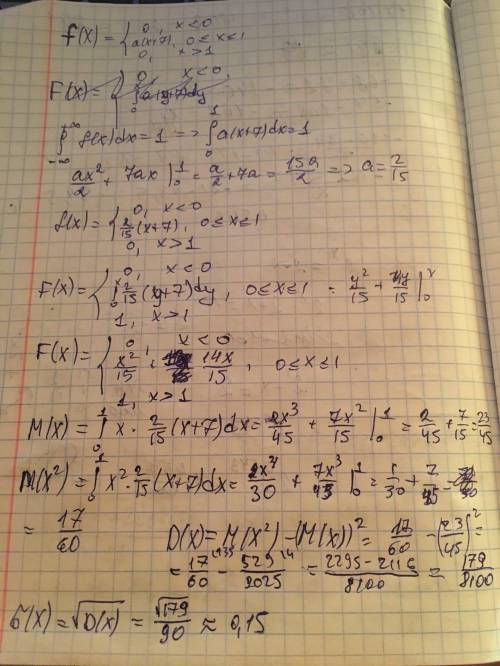 f(x) = { 0, x < 0
a(x+7), 0 ≤ x ≤ 1
0, x > 1
F(x) = { 0, x < 0,
∫₀ a(y+7)dy
∫₋∞^+∞ f(x)dx = 1 => ∫₀¹ a(x+7)dx = 1
ax²/2 + 7ax |₀¹ = a/2 + 7a = 15a/2 => a = 2/15
f(x) = { 0, x < 0
2/15 (x+7), 0 ≤ x ≤ 1
0, x > 1
F(x) = { 0, x < 0
∫₀ˣ 2/15 (y+7)dy, 0 ≤ x ≤ 1 = y²/15 + 14y/15 |₀ˣ
1, x > 1
F(x) = { 0, x < 0
x²/15 + 14x/15, 0 ≤ x ≤ 1
1, x > 1
M(x) = ∫₀¹ x · 2/15 (x+7)dx = 2x³/45 + 7x²/15 |₀¹ = 2/45 + 7/15 = 23/45
M(x²) = ∫₀¹ x² · 2/15 (x+7)dx = 2x⁴/30 + 7x³/45 |₀¹ = 1/30 + 7/45 =
= 17/60
D(x) = M(x²) - (M(x))² = 17/60 - (23/45)² =
= 17/60 - 529/2025 = (2295 - 2116)/8100 = 179/8100
σ(x) = √D(x) = √179/90 ≈ 0,15